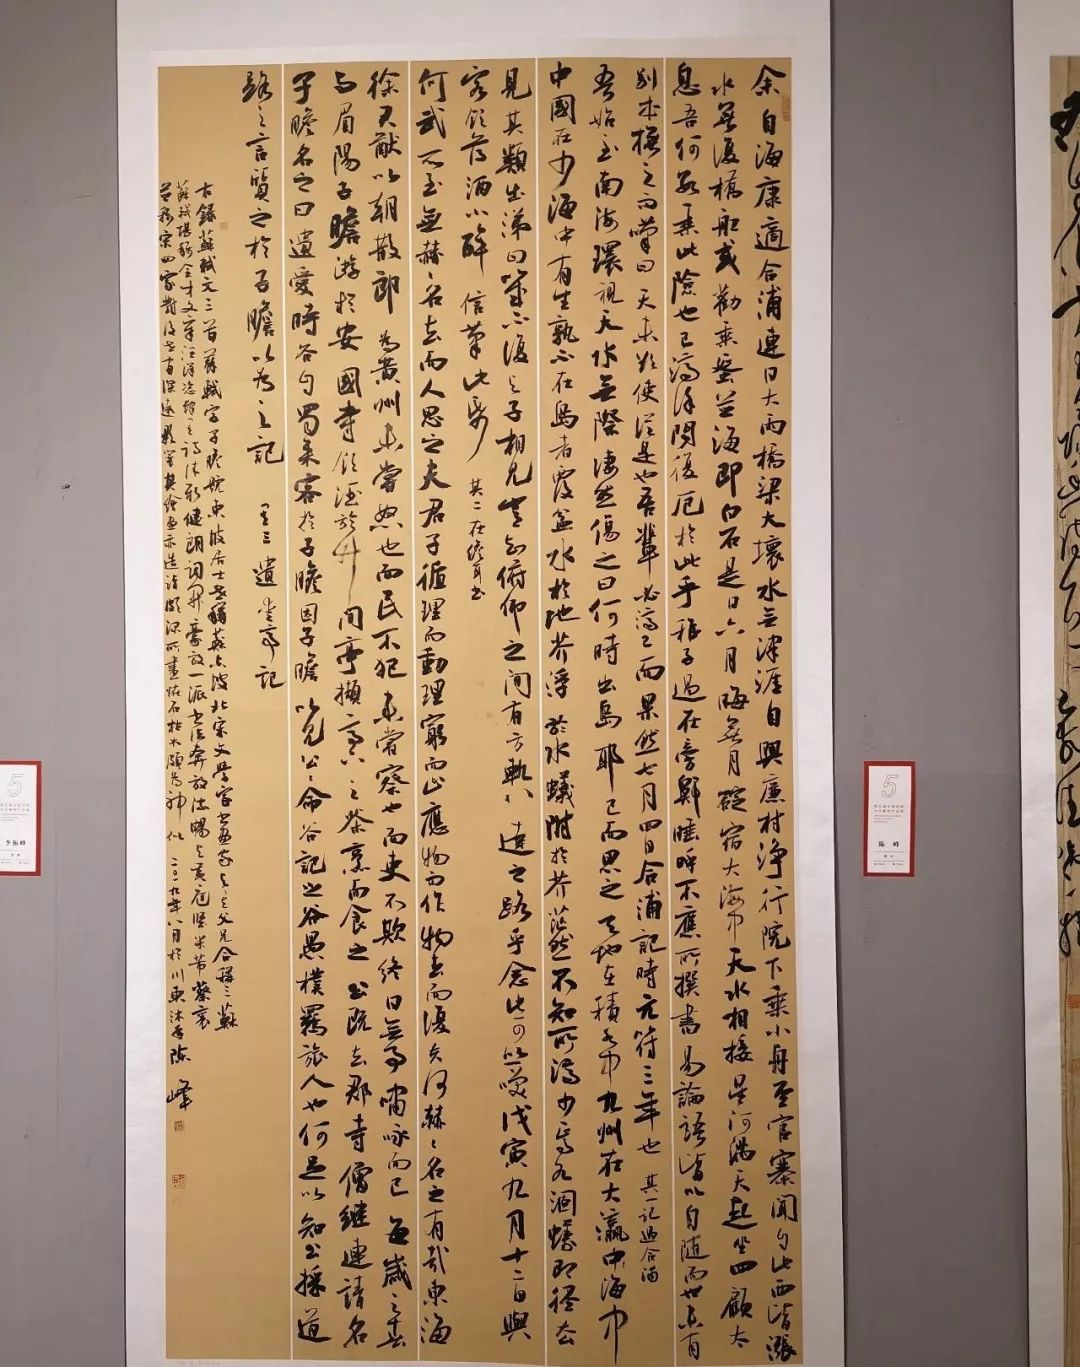 余自海康適合浦連日大雨橋梁大壞水無津涯自興廉村淨行院下乘小舟至官寨聞自此西皆漲
水無復橋船或勸乘蜑並海即白石是日六月晦無月碇宿大海中天水相接星河滿天起坐四顧太
息吾何數乘此險也已濟徐聞復厄於此乎稚子過在旁鼾睡呼不應所撰書易論語皆以自隨而世未有
別本撫之而嘆曰天未欲使從是也吾輩必濟已而果然七月四日合浦記時元符三年也 其一記過合浦
吾始至南海環視天水無際淒然傷之曰何時出島耶已而思之天地在積水中九州在大瀛海中
中國在少海中有生孰不在島者覆盆水於地芥浮於水蟻附於芥茫然不知所濟少焉水涸蟻即徑去
見其類出涕曰幾不復與子相見豈知俯仰之間有方軌八達之路乎念此可以一笑戊寅九月十二日與
客飲薄酒小醉信筆此紙 其二在儋耳書
何武所至無赫赫名去而人思之夫君子循理而動理窮而止應物而作物去而復夫何赫赫名之有哉東海
徐君猷以朝散郎為黃州未嘗怒也而民不犯未嘗察也而吏不欺終日無事嘯詠而已每歲之春
与眉陽子瞻游於安國寺飲酒於竹間亭擷亭下之茶烹而食之公既去郡寺僧繼連請名
子瞻名之曰遺愛時谷自蜀來客於子瞻因子瞻以見公公命谷記之谷愚樸羈旅人也何足以知公採道
路之言質之於子瞻以為之記 其三遺愛亭記
右錄蘇軾文三首蘇軾字子瞻號東坡居士世稱蘇東坡北宋文學家書畫家與其父兄合稱三蘇
蘇軾堪稱全才文章汪洋恣肆其詩清新健朗詞開豪放一派書法奔放流暢與黃庭堅米芾蔡襄
並称宋四家對後世有深遠影響其繪畫亦造詣頗深所畫怪石枯木頗為神似 二〇一九年八月於川東沐手陈峰
5
李振峰
5
陈 峰